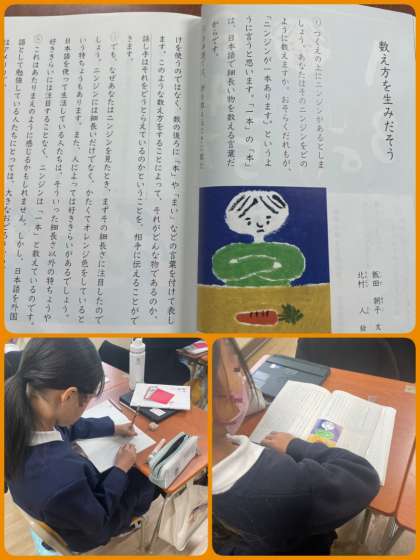 数え方を生みだそう
飯田 朝子 文
北村 人 絵
①つくえの上にニンジンがあるとしま
しょう。あなたはそのニンジンをどの
ように数えますか。おそらくだれもが、
「ニンジンが一本あります。」というよ
うに言うと思います。「一本」の「本」
は、日本語で細長い物を数える言葉だ
からです。
けを使うのではなく、数の後ろに「本」や「まい」などの言葉を付けて表し
ます。このような数え方をすることによって、それがどんな物であるのか、
話し手はそれをどうとらえているのかということを、相手に伝えることがで
きます。
でも、なぜあなたはニンジンを見たとき、まずその細長さに注目したので
しょう。ニンジンには細長いだけでなく、かたくてオレンジ色をしていると
いう特ちょうもあります。また、人によっては好ききらいがあるでしょう。
日本語を使って生活している人たちは、そういった細長さ以外の特ちょうや
好ききらいには注目することなく、ニンジンは「一本」と数えているのです。
これはあたりまえのように感じるかもしれません。しかし、日本語を外国
語として勉強している人たちにとっては、大きなおどろき